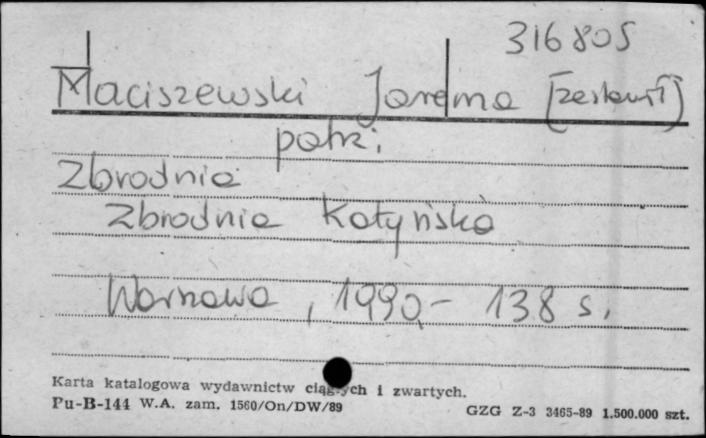 316805
Maciszewski Jarema [zestawił]
patrz:
Zbrodnia
Zbrodnia Katyńska
Warszawa, 1990 - 138 s.
Karta katalogowa wydawnictw ciągłych i zwartych.
Pu-B-144 W.A. zam. 1560/On/DW/89
GZG Z-3 3465-89 1.500.000 szt.